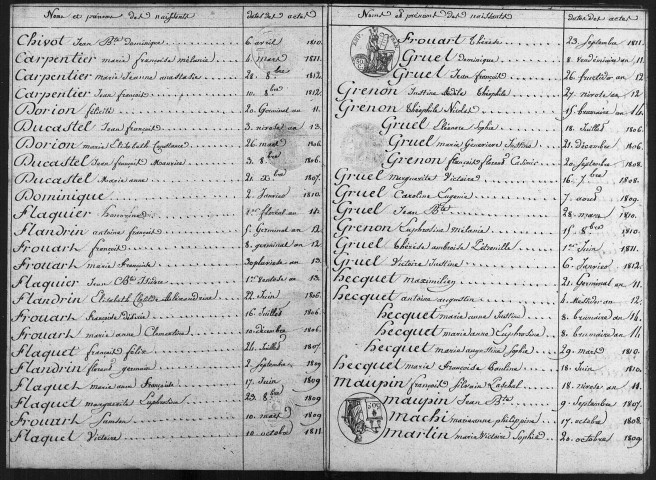 Noms et prénoms des naissants dates des actes
Chivot Jean Bte dominique 6 avril 1810.
Carpentier marie françoise mélanie 4 mars 1811.
Carpentier marie Jeanne anastasie 28. 8bre 1812.
Carpentier Jean françois 10. 8bre 1812.
Dorion félicité 20. Germinal an 11.
Ducastel Jean françois 3. nivose an 13.
Dorion marie Elisabeth Constance 26 mars 1806.
Ducastel Jean françois Maurice 3. 8bre 1806.
Ducastel Marie anne 21. Xbre 1807.
Dominique 2 Janvier 1810.
Flaquier honorine 1er floréal an 11.
Flandrin antoine françois 5. Germinal an 12
Frouart françois 8 germinal an 12
Frouart marie françoise 30 pluviose an 13
Flaquier Jean Bte Isidore 1er ventose an 13
Flandrin Elisabeth Clotilde Alexandrine 22 Juin 1806.
Frouart françoise désirée 16 Juillet 1806.
Frouart marie anne Clementine 10 décembre 1806.
Flaquet françois félix 21. Juillet 1807.
Flandrin florent germain 2 Septembre 1809
Flaquet marie anne françoise 17 Juin 1809
Flaquet marguerite Euphrosine 23 8bre 1809
Frouart 10 mars 1809
Flaquet Victoire 10 octobre 1811.
Noms et prénoms des naissants dates des actes
Frouart Thérèse 23 Septembre 1811.
Gruel dominique 8 vendémiaire an 11.
Gruel Jean françois 26 fructidor an 12.
Grenon Justine Théophile 27 nivose an 12
Grenon Théophile Nicolas 15 brumaire an 14.
Gruel Eléonore Sophie 18 Juillet 1806.
Gruel marie Genevieve Justine 21. décembre 1806.
Grenon françois florend Casimir 20 Septembre 1808.
Gruel marguerite Victoire 16 7bre 1808.
Gruel Caroline Eugenie 7. aout 1809.
Gruel Jean Bte 28 mars 1810.
Grenon Euphrosine mélanie 15. 8bre 1810.
Gruel Thérèse ambroise Pétronille 1er Juin 1811.
Gruel Victoire Justine 6 Janvier 1812.
hecquet maximilien 21 Germinal an 11.
hecquet antoine augustin 4 Messidor an 12.
hecquet marie anne Justine 8 brumaire an 14
hecquet marie anne Euphrosine 8 brumaire an 14.
hecquet marie augustine Sophie 29 mars 1810.
hecquet marie françoise Pauline 18 Juin 1810.
maupin françois Silvain Paschal 18 nivose an 11.
maupin Jean Bte 9 Septembre 1807.
machi marianne philippine 17 octobre 1808.
martin marie Victoire Sophie 20 octobre 1809